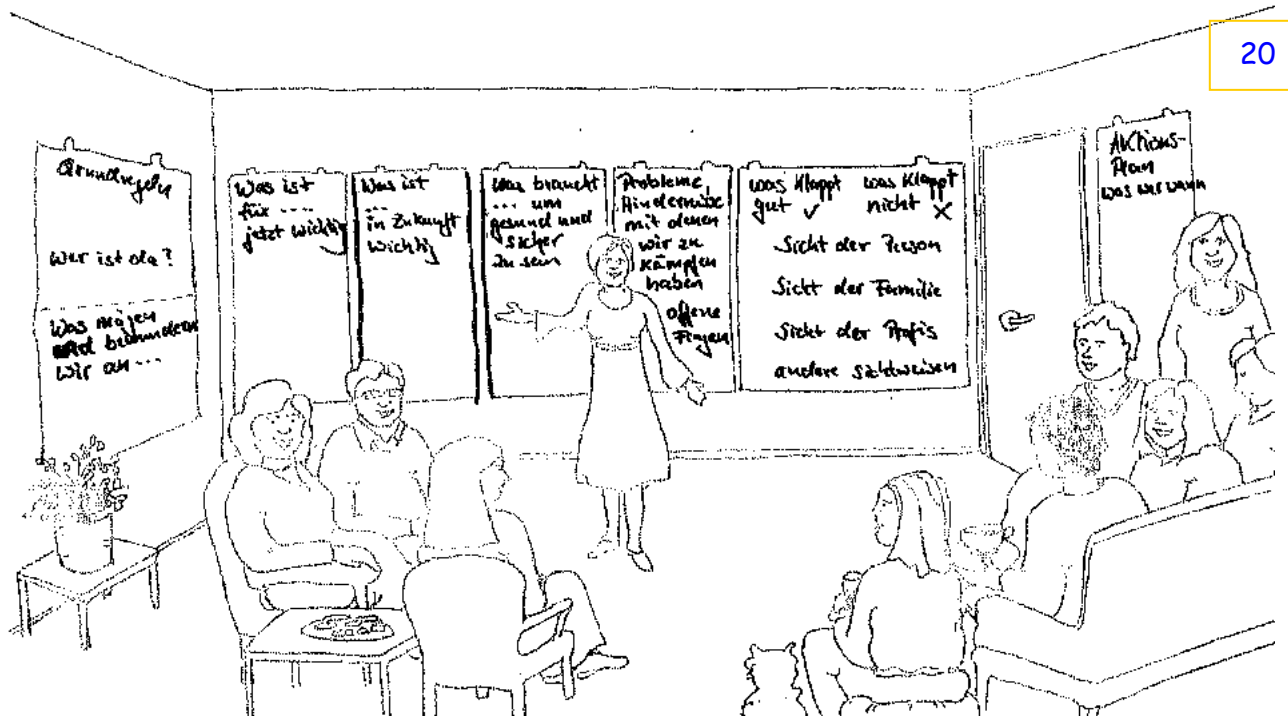 20
Grundregeln
Wer ist da?
Was mögen
und bewundern
wir an ...
Was ist
für ....
jetzt wichtig
Was ist
...
in Zukunft
wichtig
Was braucht
... um
gesund und
sicher
zu sein
Probleme,
Hindernisse
mit denen
wir zu
kämpfen
haben
offene
Fragen
was klappt
gut ✓
was klappt
nicht ✗
Sicht der Person
Sicht der Familie
Sicht der Profis
andere Sichtweisen
Aktions-
Plan
was wer wann